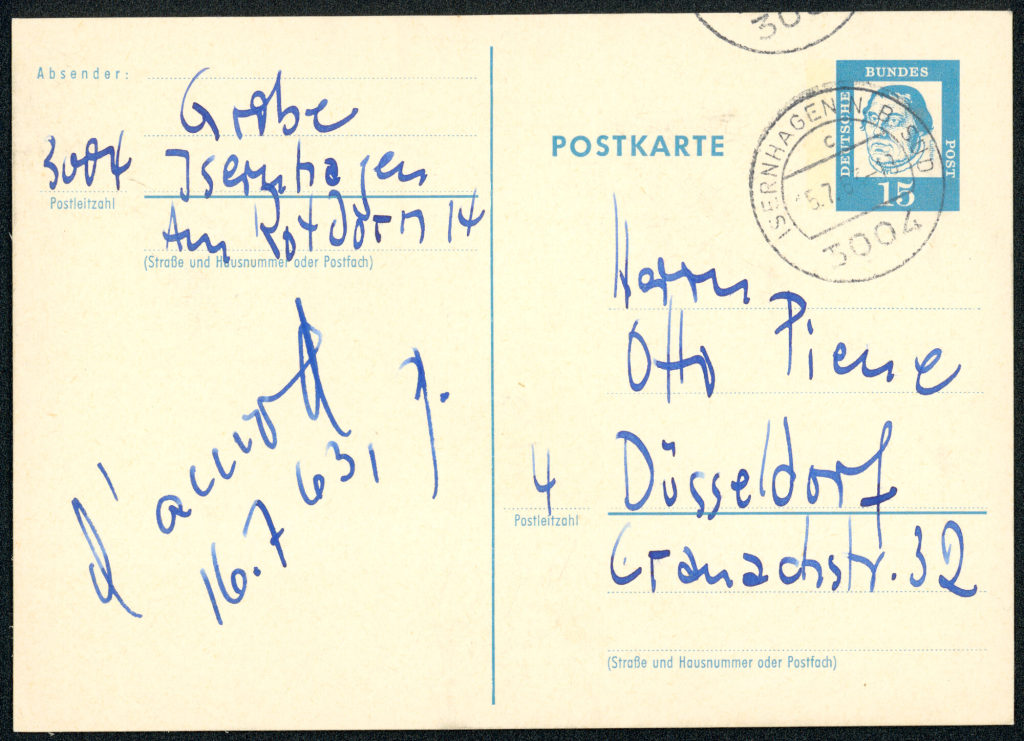 Absender:
Grabe
3004 Isernhagen
Postleitzahl
Am Rotdorn 14
(Straße und Hausnummer oder Postfach)
16.7 63,
POSTKARTE
3004
DEUTSCHE BUNDES POST
15
ISERNHAGEN N. B. SÜD
c
15.7.63
3004
Herrn
Otto Piene
4 Düsseldorf
Postleitzahl
Cranachstr. 32
(Straße und Hausnummer oder Postfach)